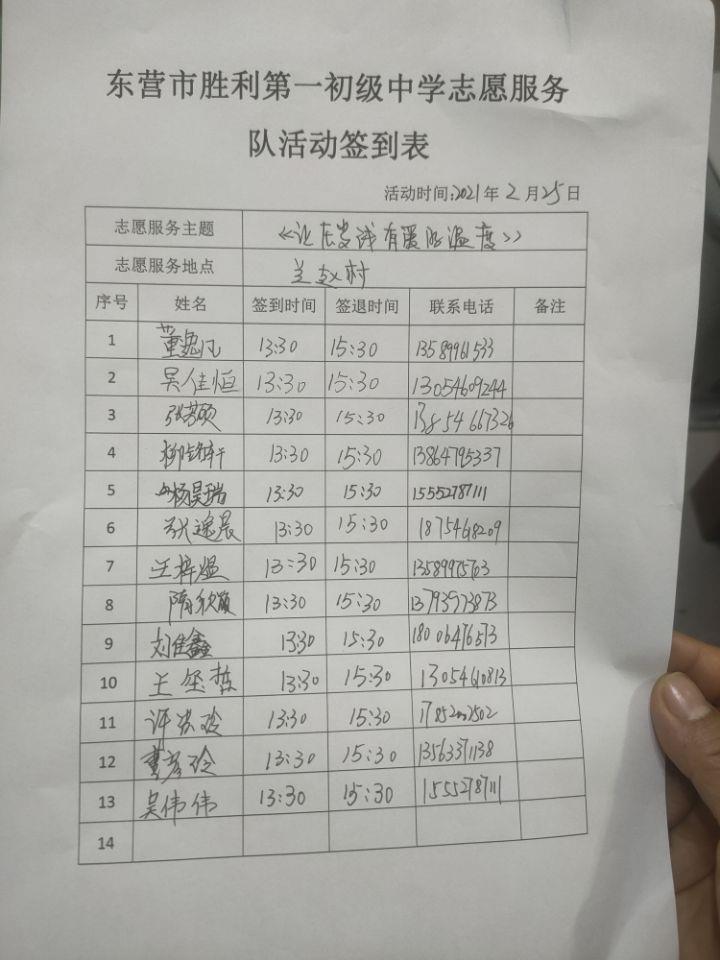 东营市胜利第一初级中学志愿服务
队活动签到表
活动时间:2021年2月25日
志愿服务主题 《让 有 温度》
志愿服务地点 兰赵村
序号 姓名 签到时间 签退时间 联系电话 备注
1 董 凡 13:30 15:30 13589961533
2 吴佳恒 13:30 15:30 13054609244
3 张 硕 13:30 15:30 13854667326
4 柳 轩 13:30 15:30 13864795337
5 杨昊瑞 13:30 15:30 15552787111
6 张逸晨 13:30 15:30 18754618209
7 王梓煜 13:30 15:30 13589975763
8 隋欣颖 13:30 15:30 13793973873
9 刘佳鑫 13:30 15:30 18006476573
10 王 哲 13:30 15:30 13054610813
11 许 玲 13:30 15:30
12 彦玲 13:30 15:30 13563371138
13 吴伟伟 13:30 15:30 15552787111
14